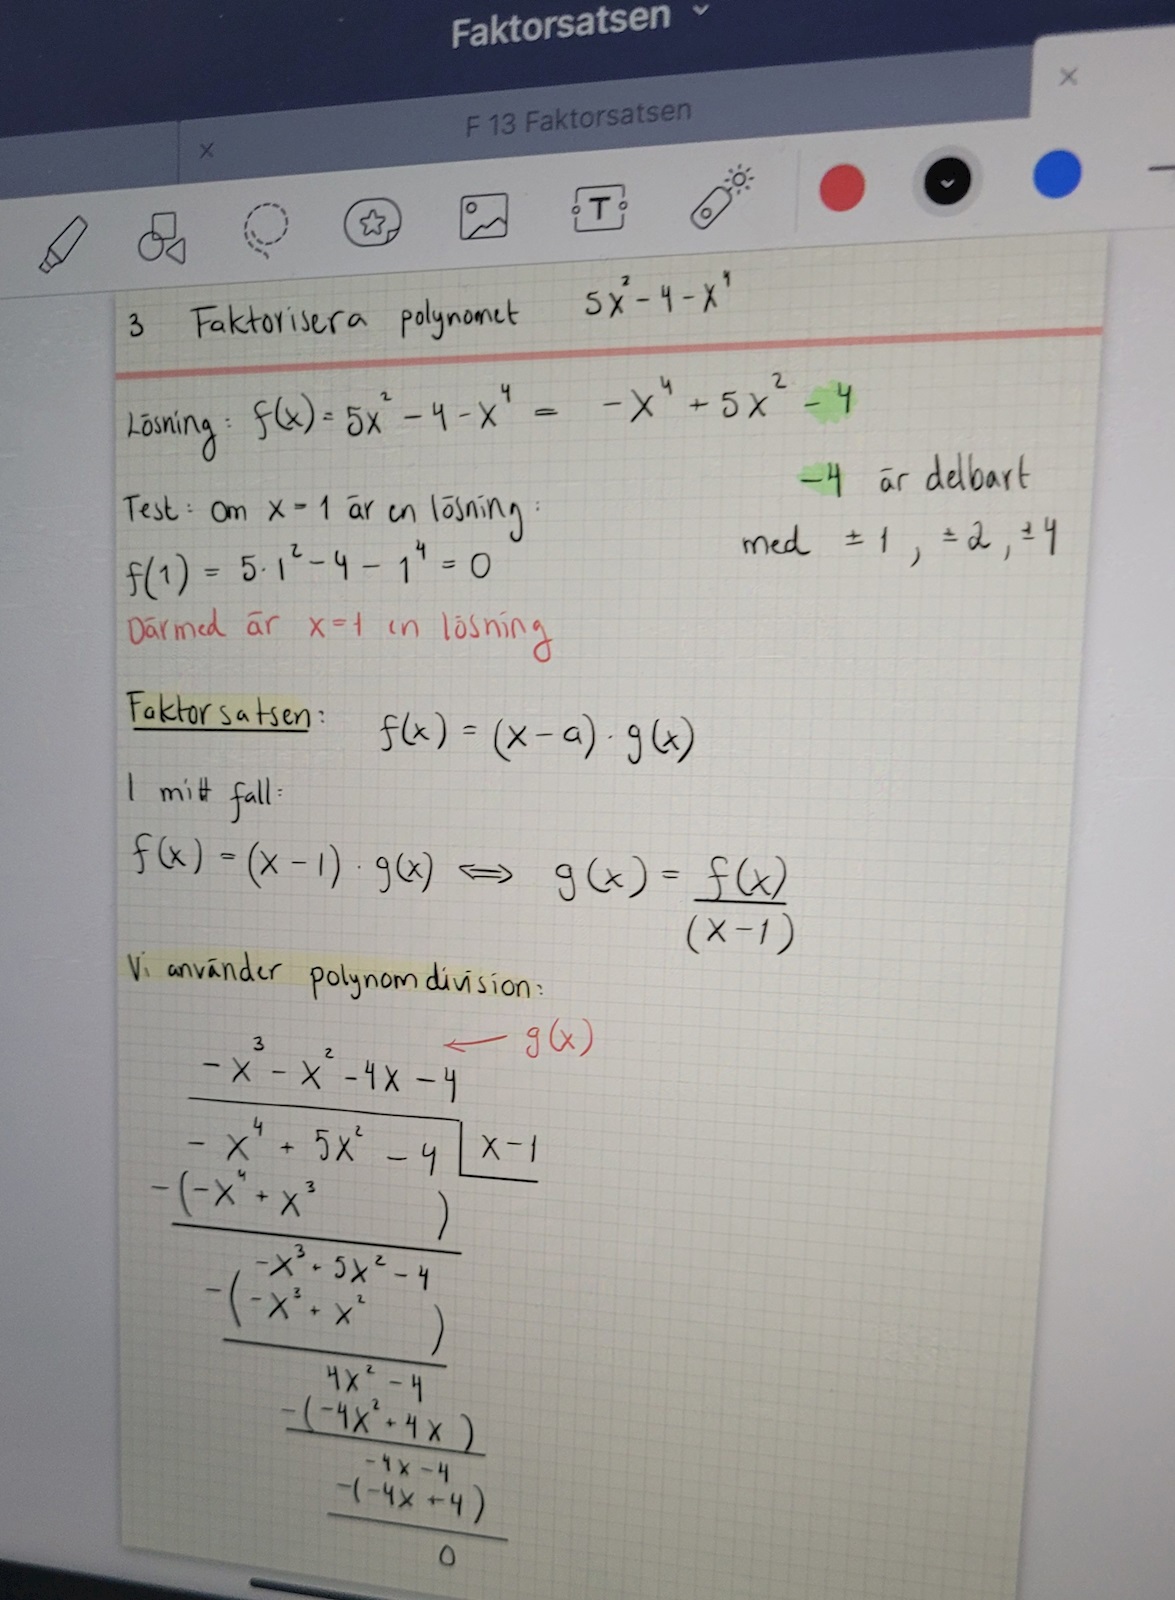 Faktorsatsen
F 13 Faktorsatsen
T
3 Faktorisera polynomet 5x² - 4 - x⁴
Lösning: f(x) = 5x² - 4 - x⁴ = -x⁴ + 5x² - 4
-4 är delbart
med ± 1, ± 2, ± 4
Test: om x = 1 är en lösning:
f(1) = 5·1² - 4 - 1⁴ = 0
Därmed är x = 1 en lösning
Faktorsatsen: f(x) = (x - a) · g(x)
I mitt fall:
f(x) = (x - 1) · g(x) ⟺ g(x) = f(x)
(x - 1)
Vi använder polynomdivision:
← g(x)
-x³ - x² - 4x - 4
-x⁴ + 5x² - 4 x - 1
-(-x⁴ + x³ )
-x³ + 5x² - 4
-(-x³ + x² )
4x² - 4
-(-4x² + 4x )
-4x - 4
-(-4x + 4)
0